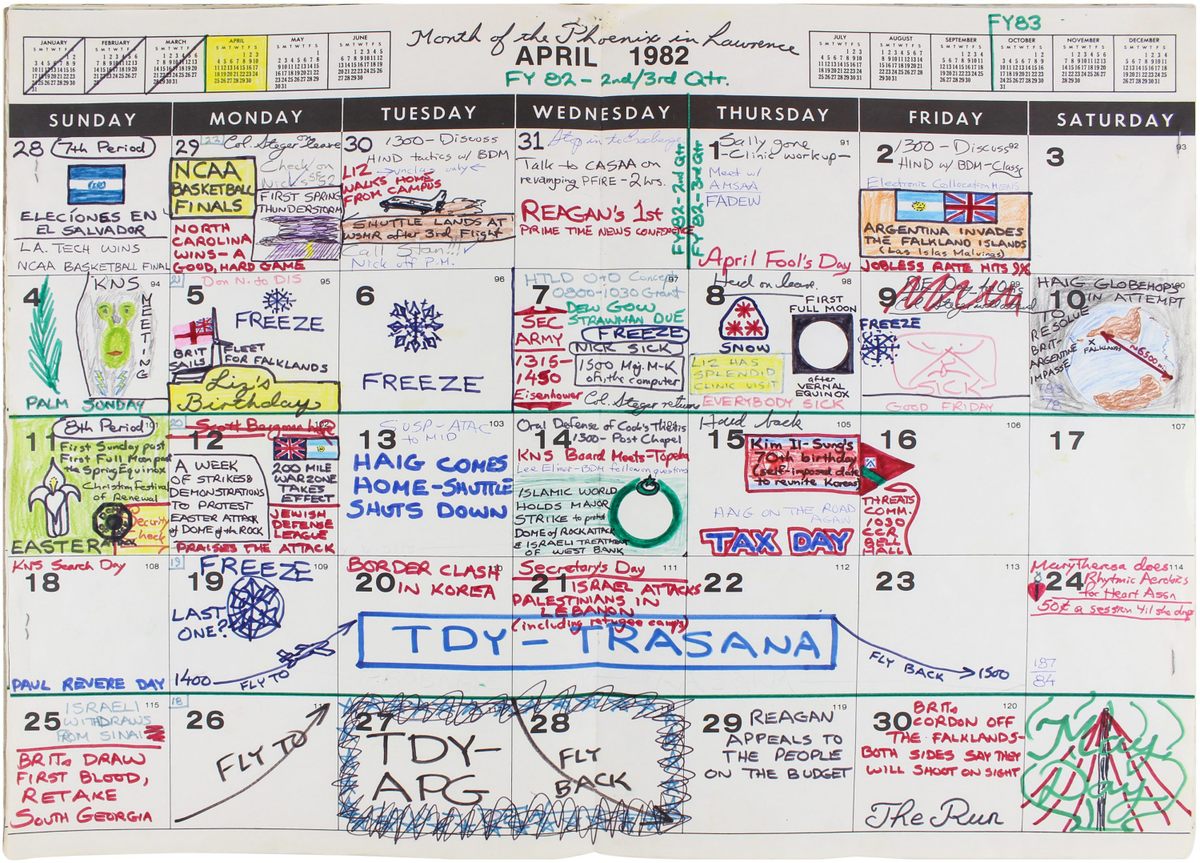 Month of the Phoenix in Lawrence
APRIL 1982
FY 82 - 2nd/3rd Qtr.
FY83
JANUARY
FEBRUARY
MARCH
APRIL
MAY
JUNE
JULY
AUGUST
SEPTEMBER
OCTOBER
NOVEMBER
DECEMBER
SUNDAY
MONDAY
TUESDAY
WEDNESDAY
THURSDAY
FRIDAY
SATURDAY
28
7th Period
ELECÍONES EN
EL SALVADOR
L.A. TECH WINS
NCAA BASKETBALL FINAL
29
Col. Steger on leave
Check on
NCAA
BASKETBALL
FINALS
FIRST SPRING
THUNDERSTORM
NORTH
CAROLINA
WINS - A
GOOD, HARD GAME
30
1300 - Discuss
HIND tactics w/ BDM
unclas only
LIZ
WALKS HOME
FROM CAMPUS
SHUTTLE LANDS AT
WSMR after 3rd. Flight
Call Stan!!!
Nick off P.M.
31
Talk to CASAA on
revamping PFIRE - 2 hrs.
REAGAN'S 1st
PRIME TIME NEWS CONFERENCE
FY 82 - 2nd Qtr
FY 82 - 3rd Qtr
1
91
Sally gone
- Clinic workup -
Meet w/
AMSAA
FADEW
April Fool's Day
2
92
1300 - Discuss
HIND w/ BDM - Class
ARGENTINA INVADES
THE FALKLAND ISLANDS
(Las Islas Malvinas)
JOBLESS RATE HITS 9%
3
93
4
94
KNS
MEETING
PALM SUNDAY
21
5
95
Don N. to DIS
FREEZE
BRIT
SAILS
FLEET
FOR FALKLANDS
Liz's
Birthday
6
96
FREEZE
7
97
0800-1030 Grant
DEW GOW
STRAWMAN DUE
SEC
ARMY
1315-
1450
Eisenhower
FREEZE
NICK SICK
1500 Maj. M-K
on the computer
Col. Steger returns
8
98
Hurd on leave.
SNOW
FIRST
FULL MOON
after
VERNAL
EQUINOX
LIZ HAS
SPLENDID
CLINIC VISIT
EVERYBODY SICK
9
FREEZE
SICK
GOOD FRIDAY
10
HAIG GLOBEHOPS
IN ATTEMPT
TO
RESOLVE
BRIT-
ARGENTINE
IMPASSE
FALKLANDS
11
8th Period
First Sunday past
First Full Moon past
the Spring Equinox
Christian festival
of Renewal
Security
Check
EASTER
20
12
Scott Bergman
A WEEK
OF STRIKES &
DEMONSTRATIONS
TO PROTEST
EASTER ATTACK
OF DOME of the ROCK
200 MILE
WARZONE
TAKES
EFFECT
JEWISH
DEFENSE
LEAGUE
PRAISES THE ATTACK
13
103
SUSP - ATAC
to MID
HAIG COMES
HOME - SHUTTLE
SHUTS DOWN
14
Oral Defense of Cook's Thesis
1300 - Post Chapel
KNS Board Meets - Topeka
ISLAMIC WORLD
HOLDS MAJOR
STRIKE to protest
DOME of ROCK ATTACK
& ISRAELI TREATMENT
OF WEST BANK
15
105
Hurd back
Kim Il-Sung's
70th birthday
(self-imposed date
to reunite Korea)
HAIG ON THE ROAD
AGAIN
TAX DAY
16
106
THREATS
COMM.
1030
CCR
BELL
HALL
17
107
18
108
KNS Search Day
PAUL REVERE DAY
19
19
109
FREEZE
LAST
ONE?
1400
FLY TO
20
110
BORDER CLASH
IN KOREA
21
111
Secretary's Day
ISRAEL ATTACKS
PALESTINIANS IN
LEBANON
(including refugee camps)
TDY - TRASANA
22
112
23
113
FLY BACK
1500
24
114
MaryTheresa does
Rhytmic Aerobics
for Heart Assn
50¢ a session 'til she drops
187
84
25
115
ISRAELI
WITHDRAWS
FROM SINAI
BRITs DRAW
FIRST BLOOD,
RETAKE
SOUTH GEORGIA
18
26
FLY TO
27
TDY -
APG
28
FLY
BACK
29
119
REAGAN
APPEALS TO
THE PEOPLE
ON THE BUDGET
30
120
BRITs
CORDON OFF
THE FALKLANDS -
BOTH SIDES SAY THEY
WILL SHOOT ON SIGHT
The Run
May
Day